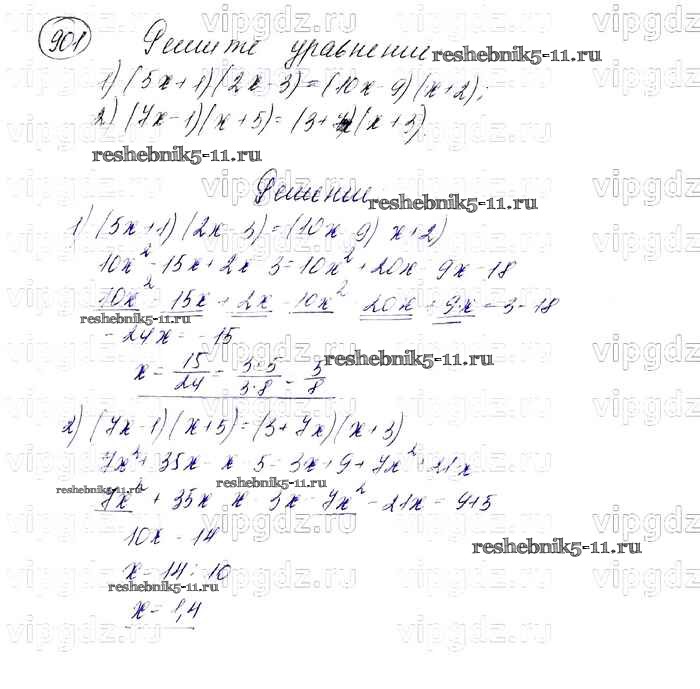 901 Решите уравнение reshebnik5-11.ru
1) (5x+1)(2x-3)=(10x-9)(x+2);
2) (7x-1)(x+5)=(3+7x)(x+3)
reshebnik5-11.ru
Решение reshebnik5-11.ru
1) (5x+1)(2x-3)=(10x-9)(x+2)
10x² - 15x + 2x - 3 = 10x² + 20x - 9x - 18
10x² - 15x + 2x - 10x² - 20x + 9x = 3 - 18
reshebnik5-11.ru
-24x = -15
x = 15/24 = 3·5/3·8 = 5/8 reshebnik5-11.ru
2) (7x-1)(x+5)=(3+7x)(x+3)
7x² + 35x - x - 5 = 3x + 9 + 7x² + 21x
reshebnik5-11.ru
7x² + 35x - x - 3x - 7x² - 21x = 9+5
10x = 14 reshebnik5-11.ru
x = 14 : 10
reshebnik5-11.ru
x = 1,4
vipgdz.ru